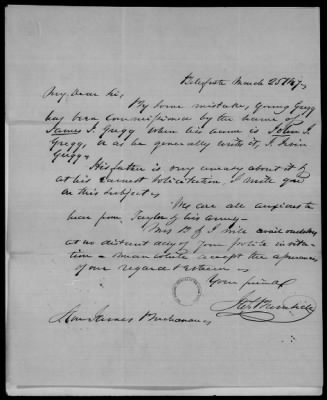 Bellefonte March 25th 47
My Dear Sir,
By some mistake, young Gregg
has been commissioned by the name of
James I. Gregg when his name is John I.
Gregg, or as he generally writes it, I. Irvin
Gregg.
His father is very uneasy about it &
at his earnest solicitation I write you
on this subject
We are all anxious to
hear from Taylor & his army
Mrs B & I will avail ourselves
at no distant day of your polite invita-
tion - meanwhile accept the assurance
of our regard & esteem
Your friend
Hon James Buchanan